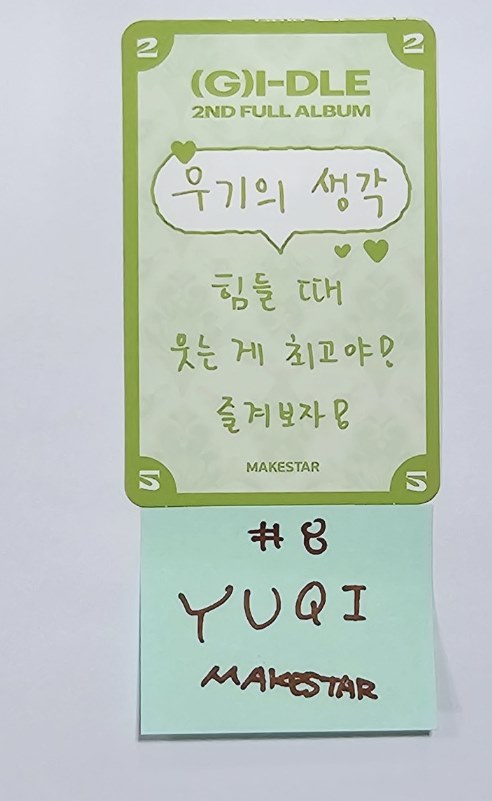 2 2
(G)I-DLE
2ND FULL ALBUM
우기의 생각
힘들 때
웃는 게 최고야!
즐겨보자!
MAKESTAR
2 2
#8
YUQI
MAKESTAR